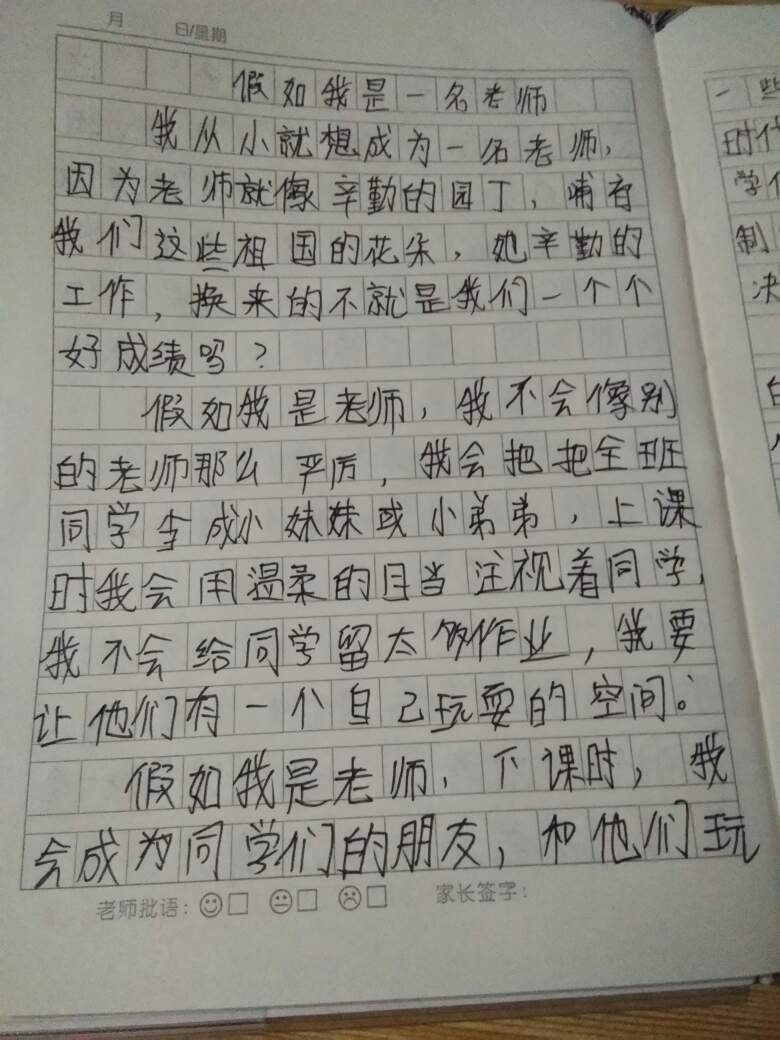 月 日/星期
假如我是一名老师
我从小就想成为一名老师，
因为老师就像辛勤的园丁，哺育
我们这些祖国的花朵，她辛勤的
工作，换来的不就是我们一个个
好成绩吗？
假如我是老师，我不会像别
的老师那么严厉，我会把把全班
同学当成小妹妹或小弟弟，上课
时我会用温柔的目当注视着同学，
我不会给同学留太多作业，我要
让他们有一个自己玩耍的空间。
假如我是老师，下课时，我
会成为同学们的朋友，和他们玩
老师批语： 家长签字：
一些
时代
学
制
决